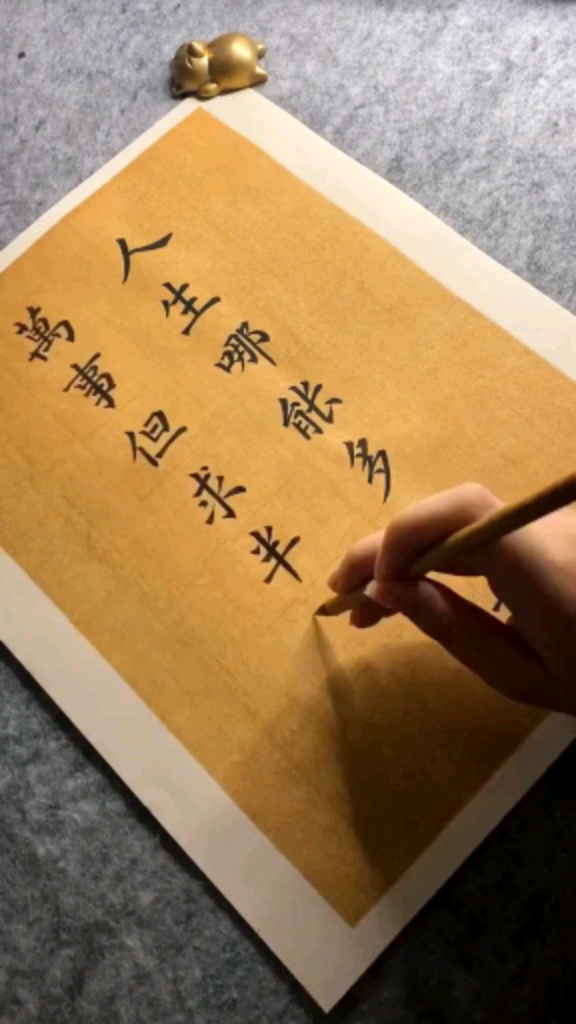 人生哪能多
萬事但求半